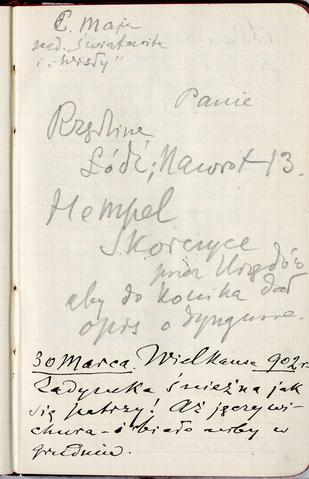 E. Maja
red. Światowita
i „Wisły"
Panie
Rzędzina
Łódź, Nawrot 13.
Hempel
Skorczyce
przez Urzędów
aby do konika dał
opis o dyngusie.
30 Marca. Wielkanoc 902 r.
Zadymka śnieżna jak
się patrzy! Aż jęczy wi-
chura – i biało niby w
grudniu.